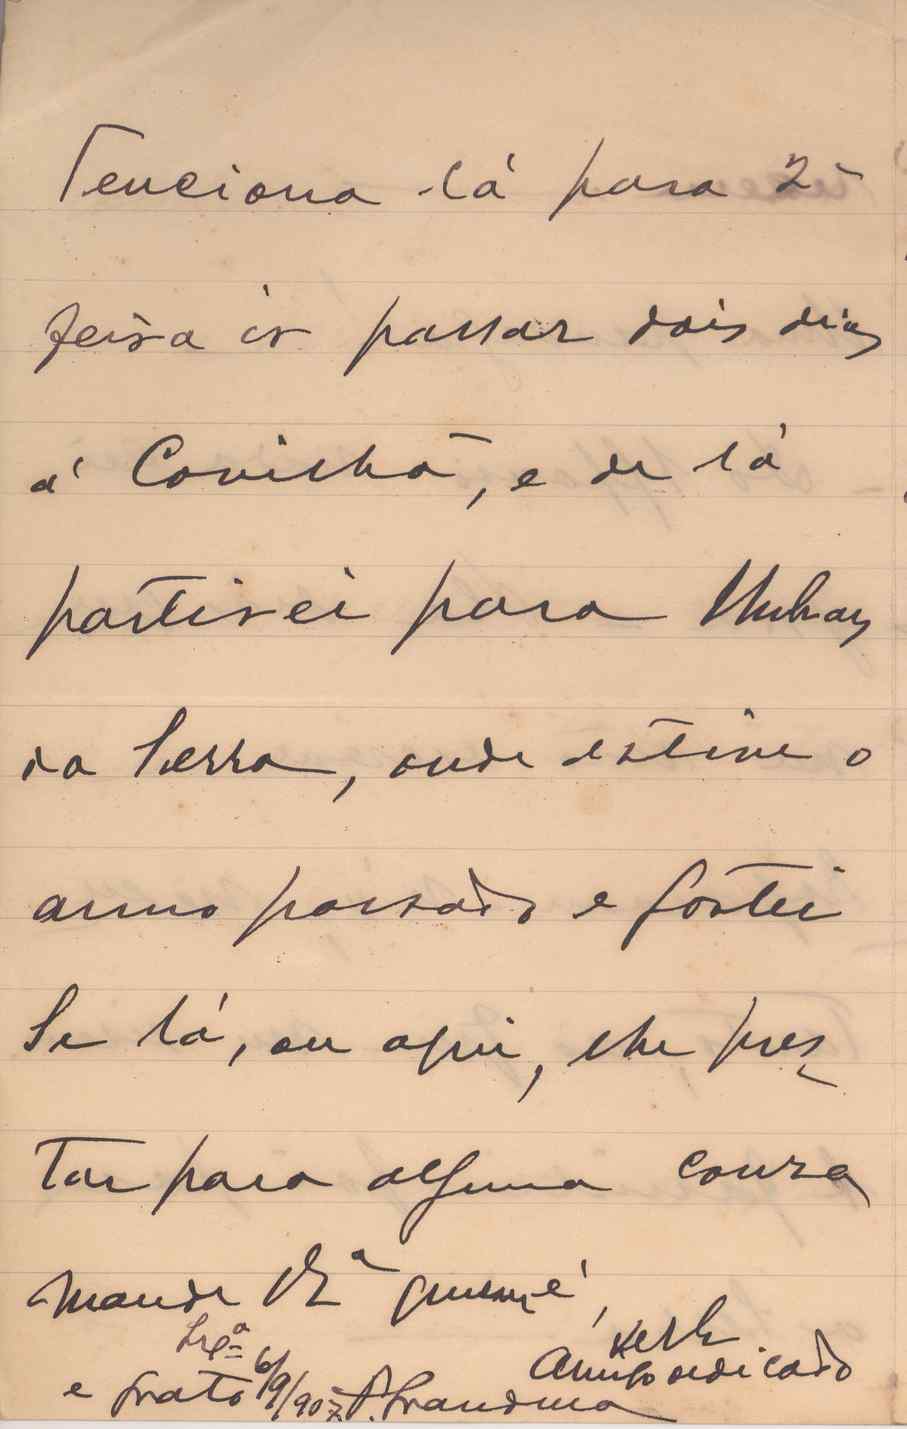 Tenciona lá para 2ª
feira ir passar dois dias
á Covilhã, e de lá
partirei para Unhaes
da Serra, onde estive o
anno passado e gostei
Se lá, ou aqui, lhe pres-
tar para alguma couza
mande V. Exª quem é,
Amigo dedicado
e grato
6/9/907